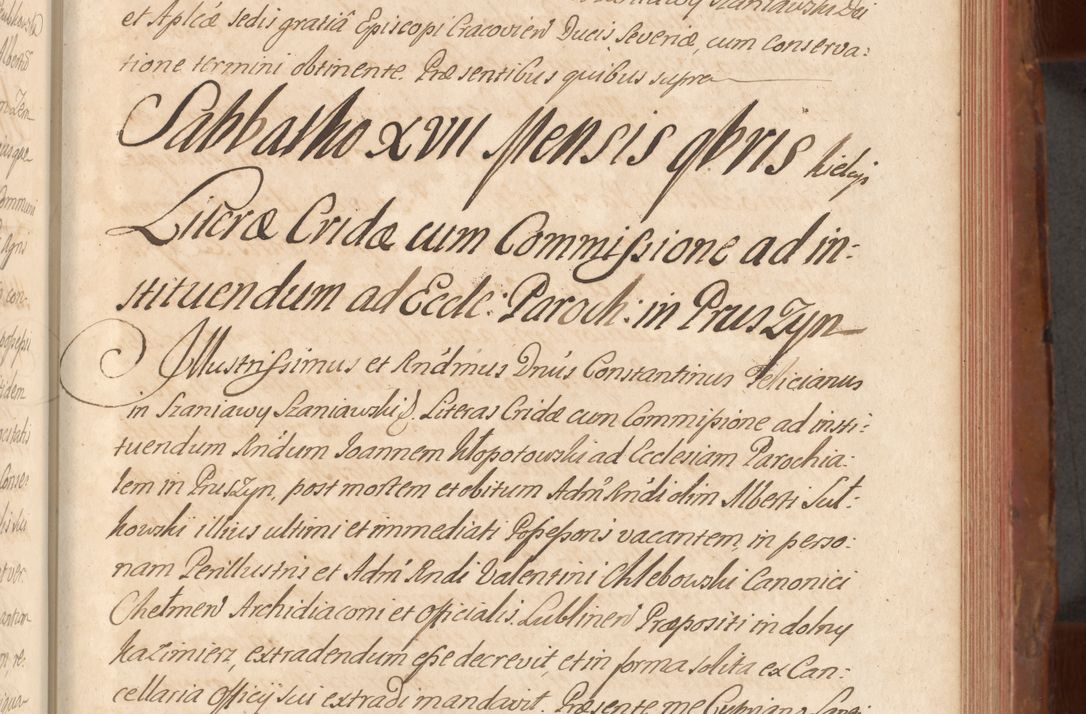 et Aplicæ Sedis gratiâ Episcopi Cracovien Ducis Severiæ, cum conserva:
tione termini obtinente. Præsentibus quibus supra
Sabbatho XVII Mensis 9bris Kielcijs
Literæ Cridæ cum Commissione ad in:
stituendum ad Eccle: Paroch: in Pruszyn
Illustrissimus et Rndmus Dnus Constantinus Felicianus
in Szaniawy Szaniawski &. Literas Cridæ cum Commissione ad insti:
tuendum Rndum Joannem Kłopotowski ad Ecclesiam Parochia:
lem in Pruszyn, post mortem et obitum Adm Rndi olim Alberti Suł:
kowski illius ultimi et immediati Possessoris vacantem, in perso:
nam Perillustris et Adm Rndi Valentini Chlebowski Canonici
Chełmen Archidiaconi et Officialis Lublinen Præpositi in dolny
Kazimierz, extradendum esse decrevit, et in forma solita ex Can:
cellaria Officij sui extradi mandavit. Præsente me Cypriano